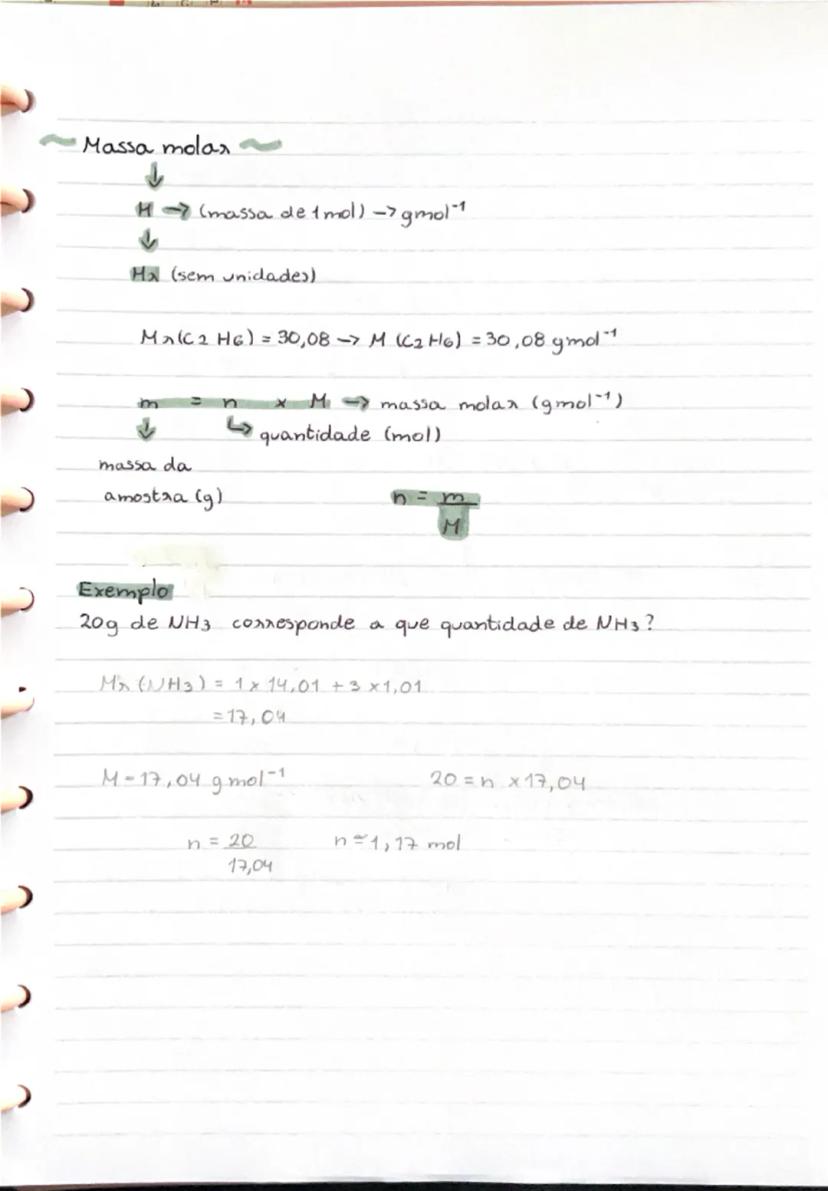 ~ Massa molar ~
↓
M → (massa de 1mol) → gmol⁻¹
↓
Mr (sem unidades)
Mr(C2 H6) = 30,08 → M (C2H6) = 30,08 gmol⁻¹
m = n × M → massa molar (gmol⁻¹)
↓ ↳ quantidade (mol)
massa da
amostra (g) n = m
M
Exemplo
20g de NH3 corresponde a que quantidade de NH3?
Mr (NH3) = 1 × 14,01 + 3 × 1,01
= 17,04
M = 17,04 g mol⁻¹ 20 = n × 17,04
n = 20 n ≃ 1,17 mol
17,04